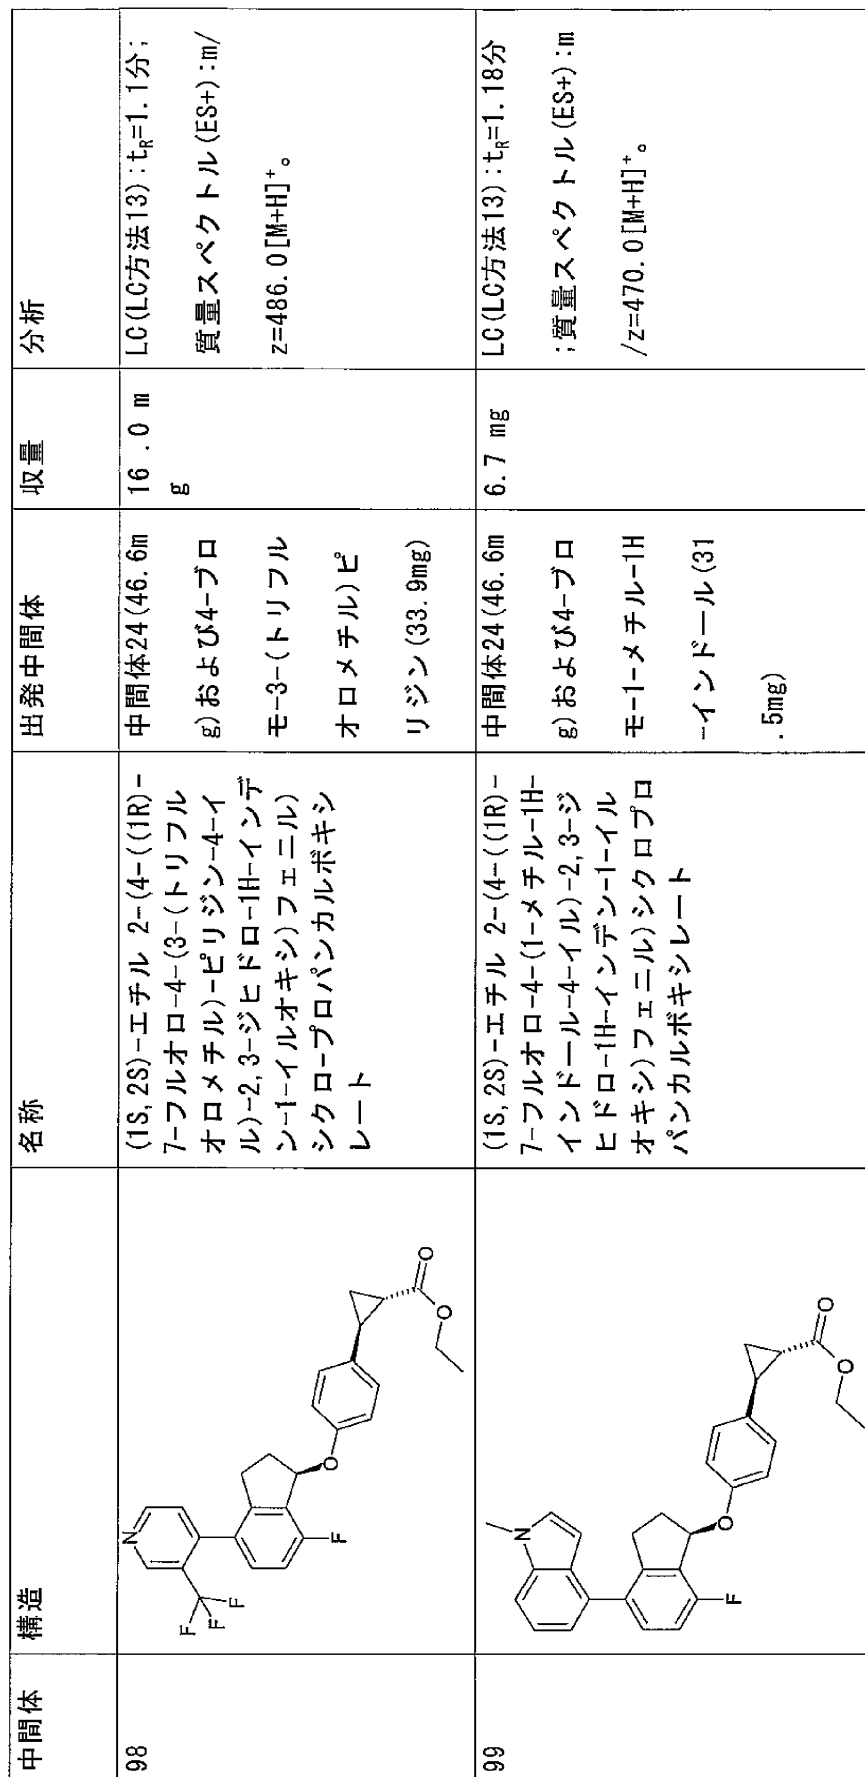 中間体
構造
名称
出発中間体
収量
分析
98
N
F
F
F
F
O
O
O
(1S,2S)-エチル 2-(4-((1R)-
7-フルオロ-4-(3-(トリフル
オロメチル)-ピリジン-4-イ
ル)-2,3-ジヒドロ-1H-インデ
ン-1-イルオキシ)フェニル)
シクロ-プロパンカルボキシ
レート
中間体24(46.6m
g)および4-ブロ
モ-3-(トリフル
オロメチル)ピ
リジン(33.9mg)
16 .0 m
g
LC(LC方法13):tR=1.1分;
質量スペクトル(ES+):m/
z=486.0[M+H]+。
99
N
F
O
O
O
(1S,2S)-エチル 2-(4-((1R)-
7-フルオロ-4-(1-メチル-1H-
インドール-4-イル)-2,3-ジ
ヒドロ-1H-インデン-1-イル
オキシ)フェニル)シクロプロ
パンカルボキシレート
中間体24(46.6m
g)および4-ブロ
モ-1-メチル-1H
-インドール(31
.5mg)
6.7 mg
LC(LC方法13):tR=1.18分
;質量スペクトル(ES+):m
/z=470.0[M+H]+。